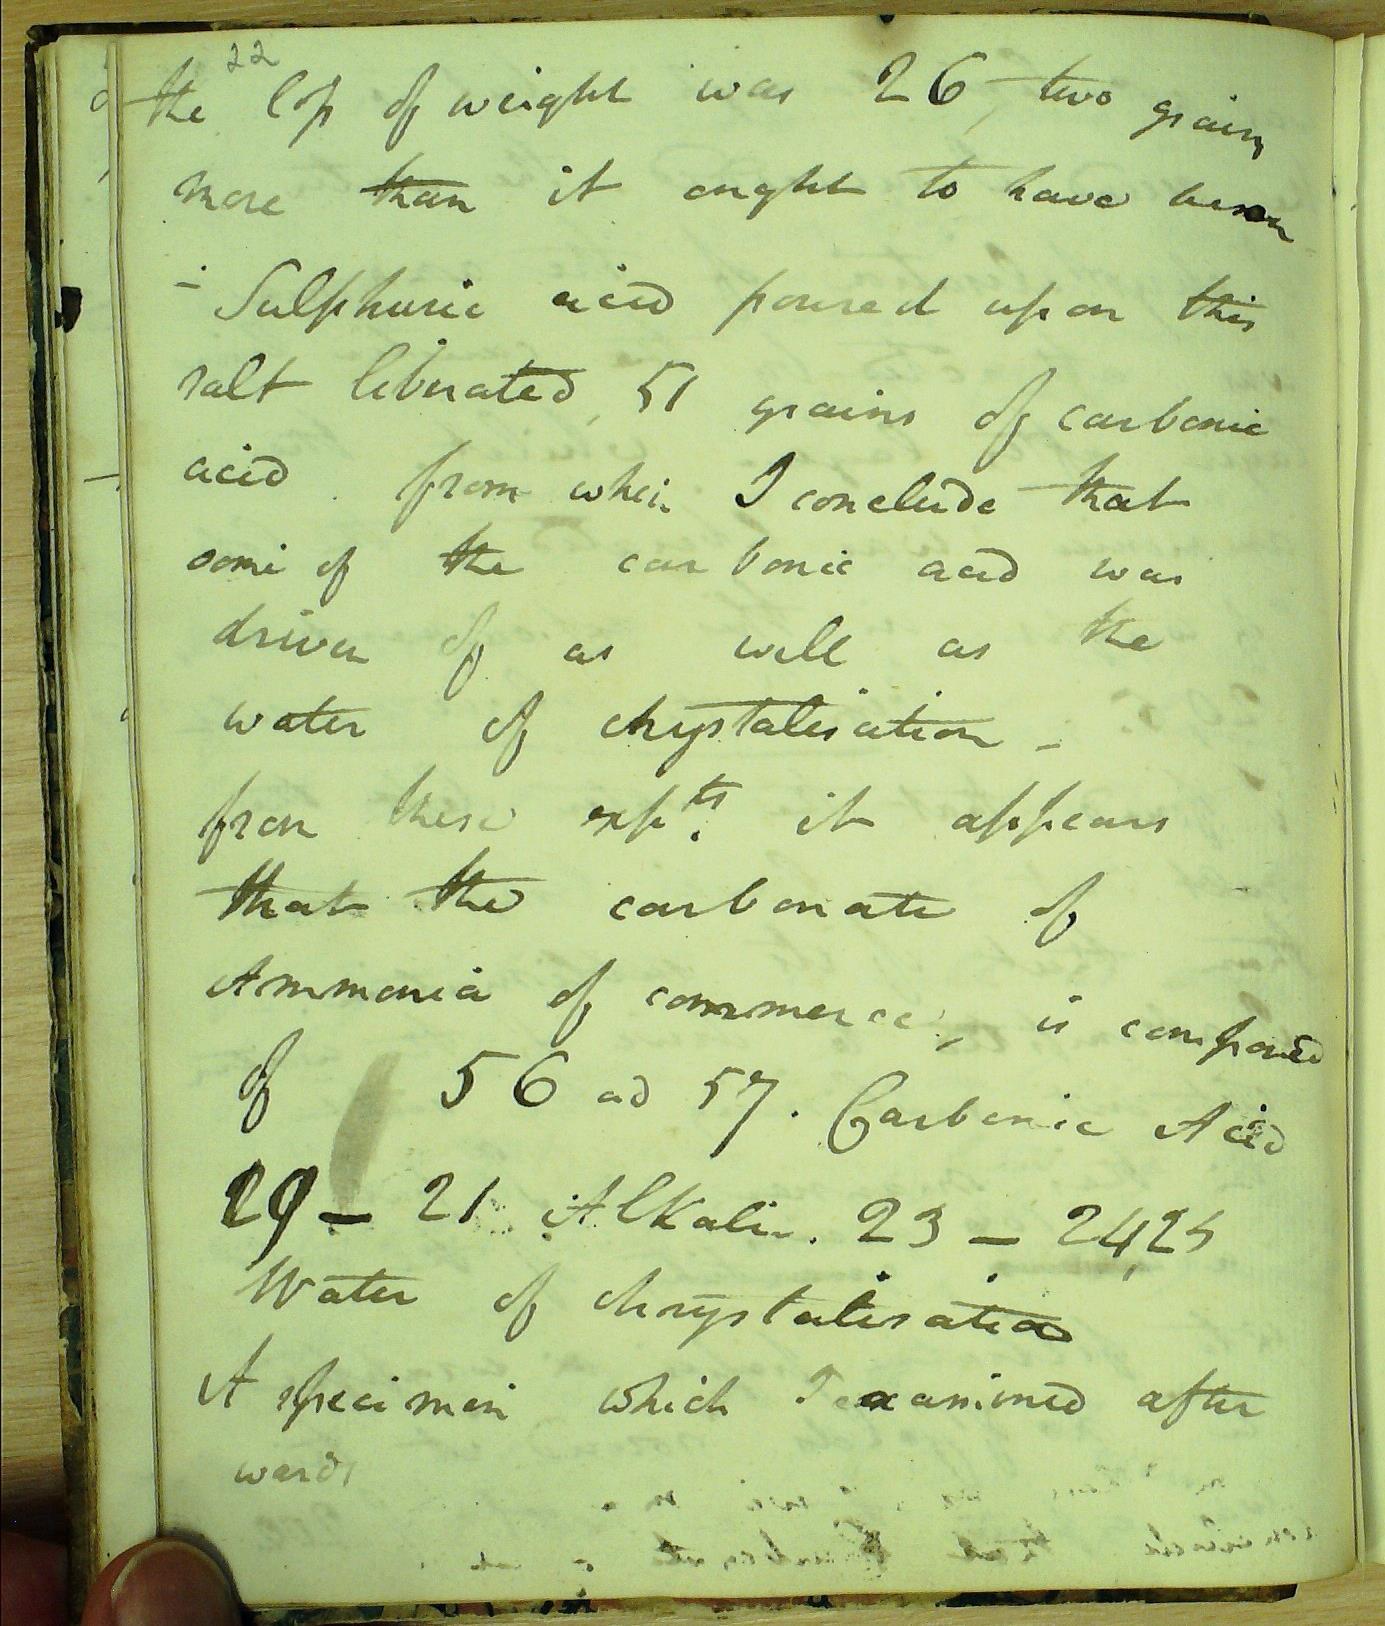 22
the loss of weight was 26, two grains
more than it ought to have been
- Sulphuric acid poured upon this
salt liberated, 51 grains of carbonic
acid. from whic I conclude that
some of the carbonic acid was
driven of as well as the
water of chrystalisation -
from these expts. it appears
that the carbonate of
Ammonia of commerce, is composed
of 56 ad 57. Carbonic Acid
29 - 21 Alkali. 23 - 24,25
Water of chrystalisation
A specimen which I examined after
wards